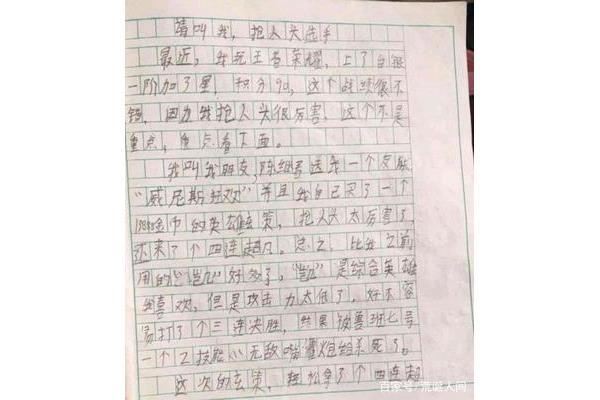 请叫我，抢人头选手
最近，我玩王者荣耀，上了白银
一阶加了星，积分90，这个战绩很不
错，因为我抢人头很厉害，这个不是
重点，重点看下面。
我叫我朋友，陈继号送我一个皮肤
“威尼斯狂欢”并且我自己买了一个
18888金币的英雄玄策，抢人头太厉害了，
还来了个四连超凡。总之，比我之前
用的“铠”好多了，“铠”是综合英雄
我喜欢，但是攻击力太低了，好不容
易打了个三连决胜，结果被鲁班七号
一个2技能 无敌鲨嘴炮给杀死了。
这次的玄策，轻松拿了个四连超
百家号/荒诞人间